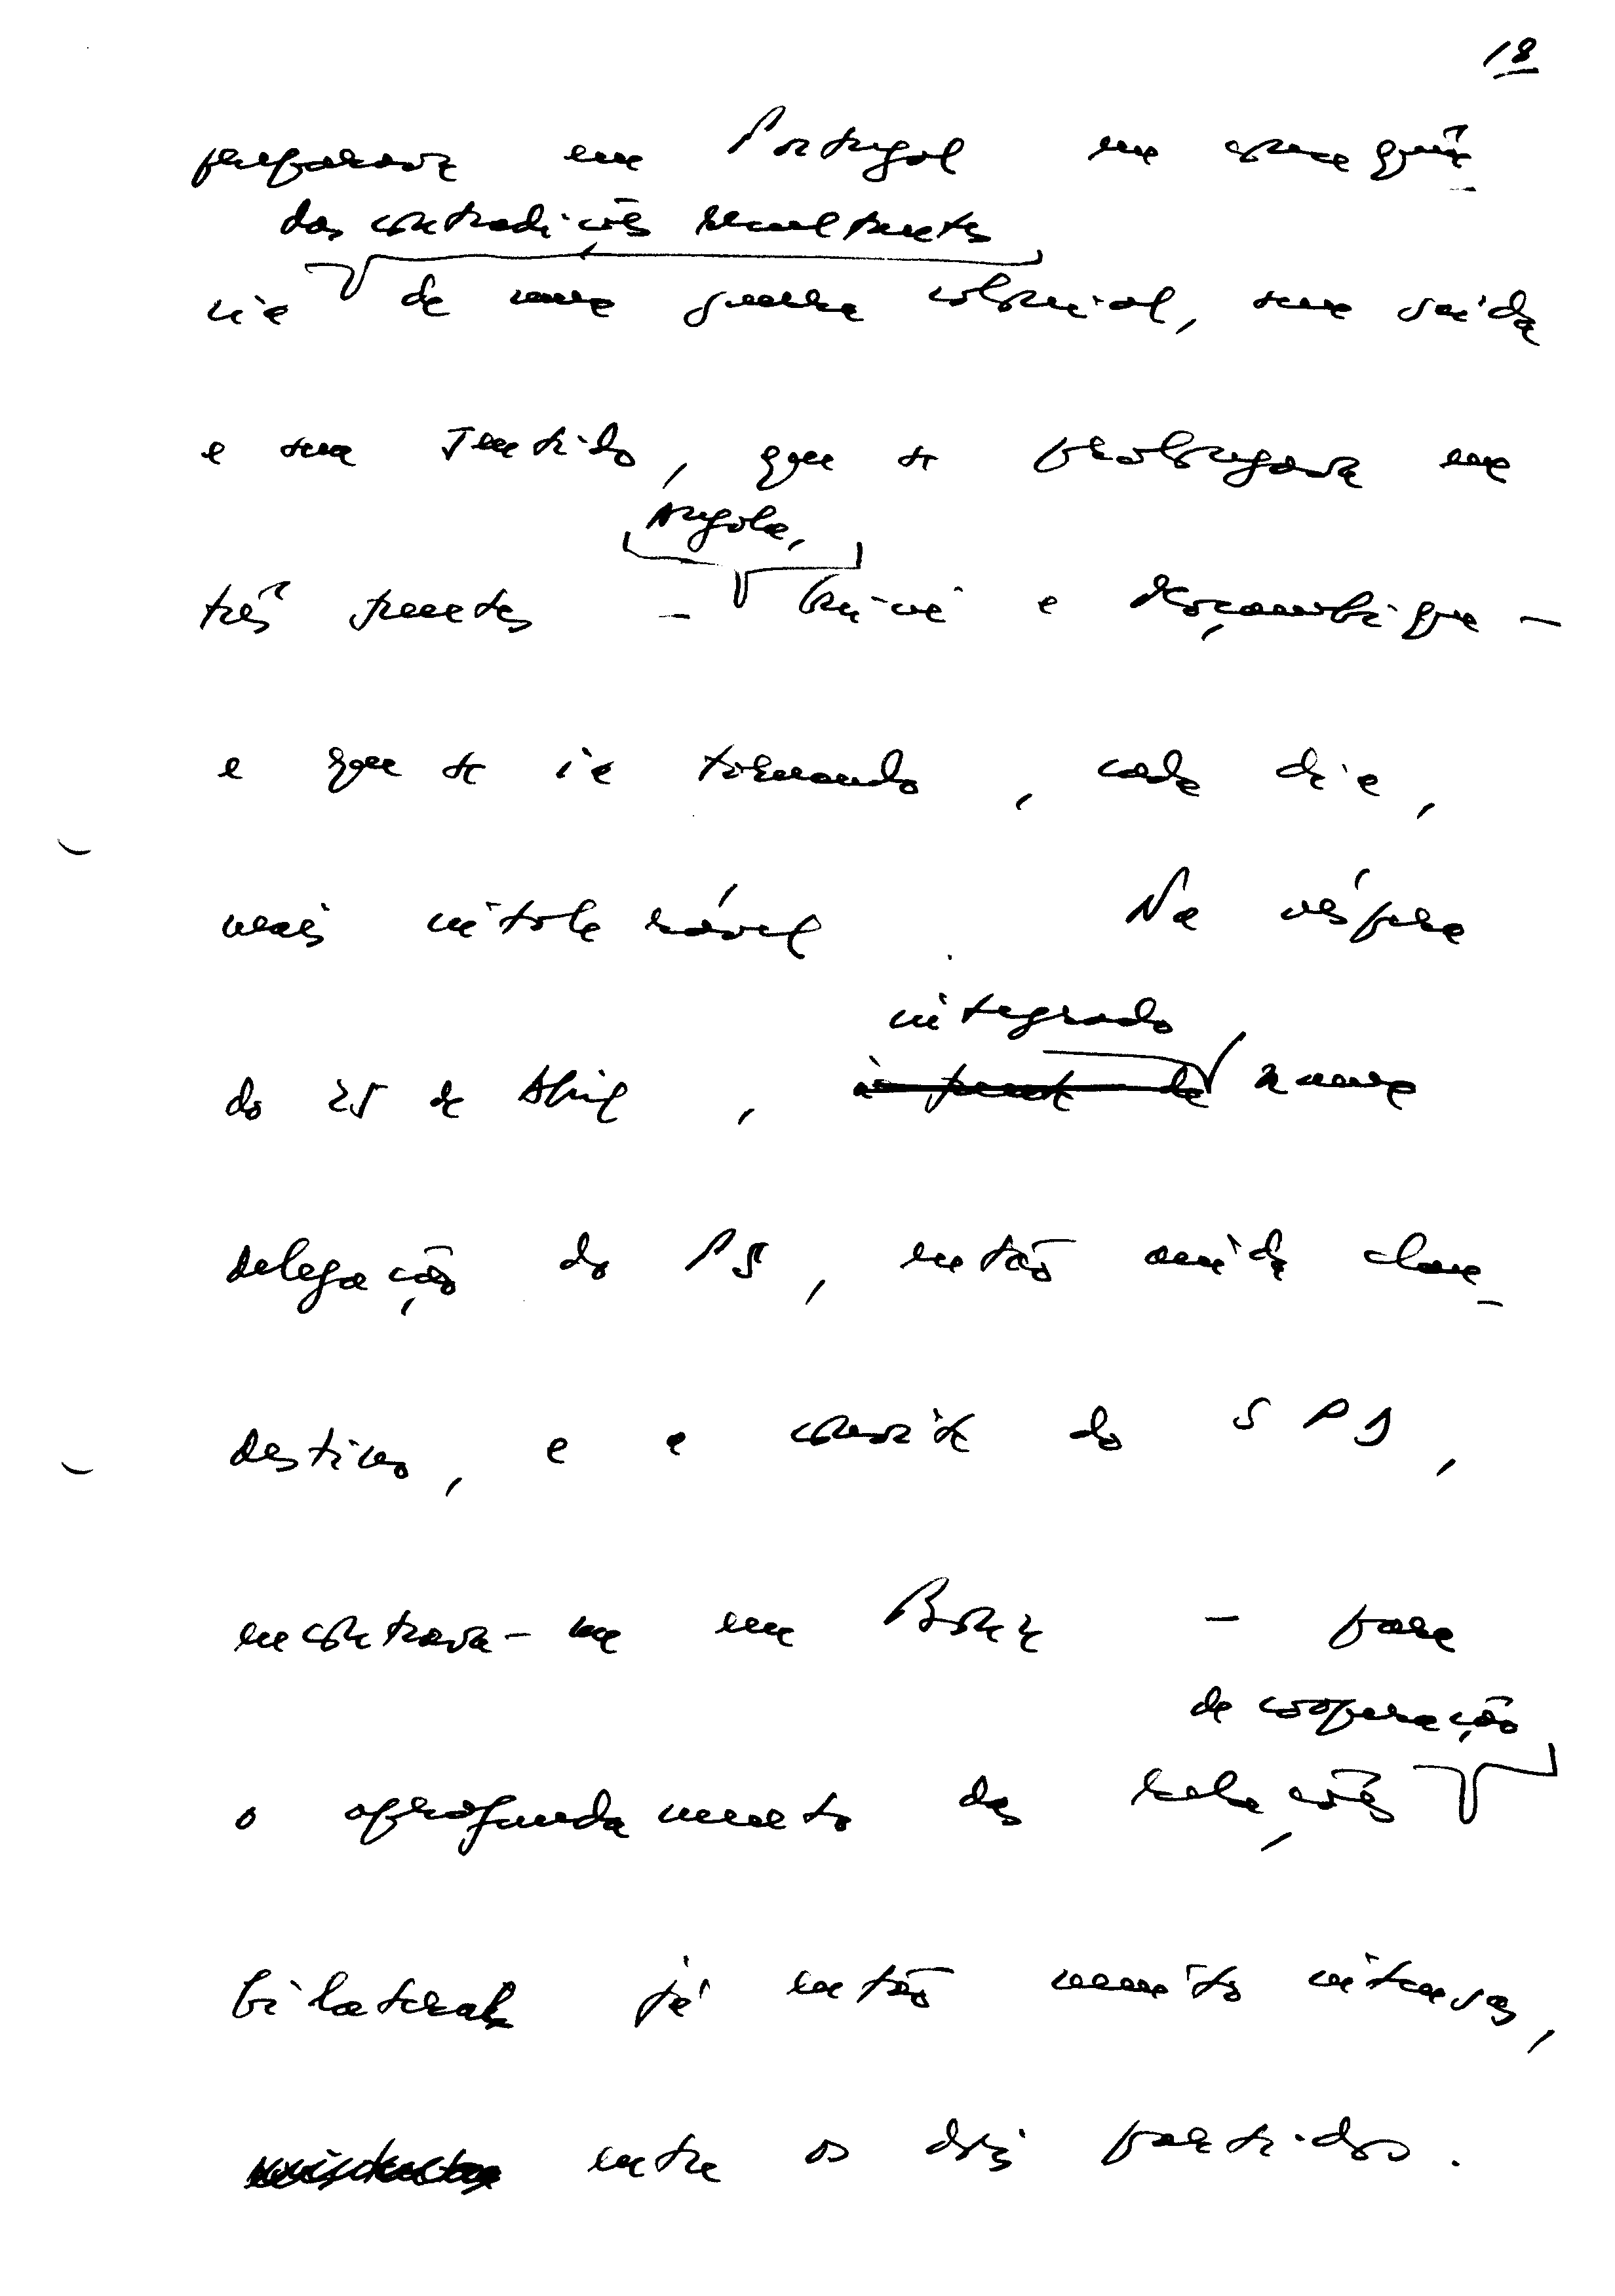 18
preparava em Portugal em consequên-
das contradições resultantes
cia de uma guerra colonial, sem saída
e sem sentido, que se prolongava em
Angola,
três frentes - Guiné e Moçambique -
e que se ia tornando, cada dia,
mais intolerável. Na véspera
integrado
do 25 de Abril, à frente de numa
delegação do PS, então ainda clan-
destino, e a convite do SPD,
encontrava-me em Bona - para
de cooperação
o aprofundamento das relações
bilaterais já então muito intensas,
entre os dois partidos.